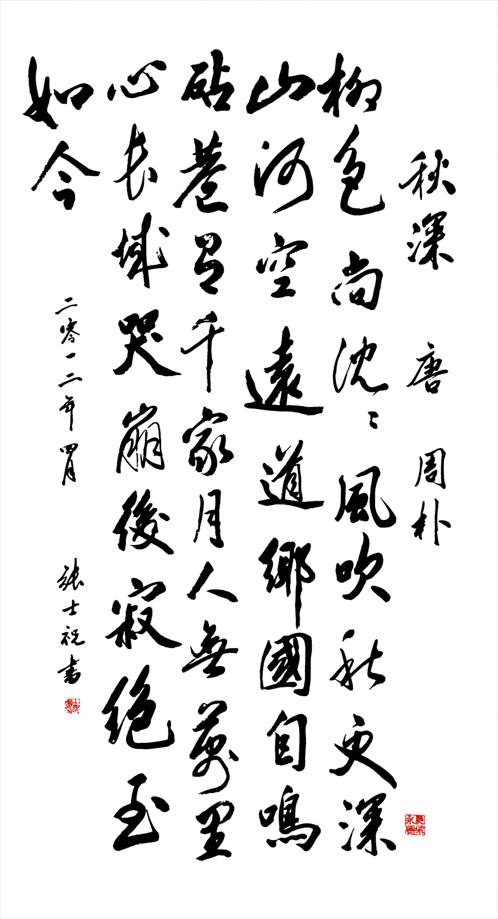 秋深 唐 周朴
柳色尚沈〻風吹秋更深
山河空遠道鄉國自鳴
砧巷有千家月人無萬里
心長城哭崩後寂絕至
如今
二零一二年四月 張士祝書